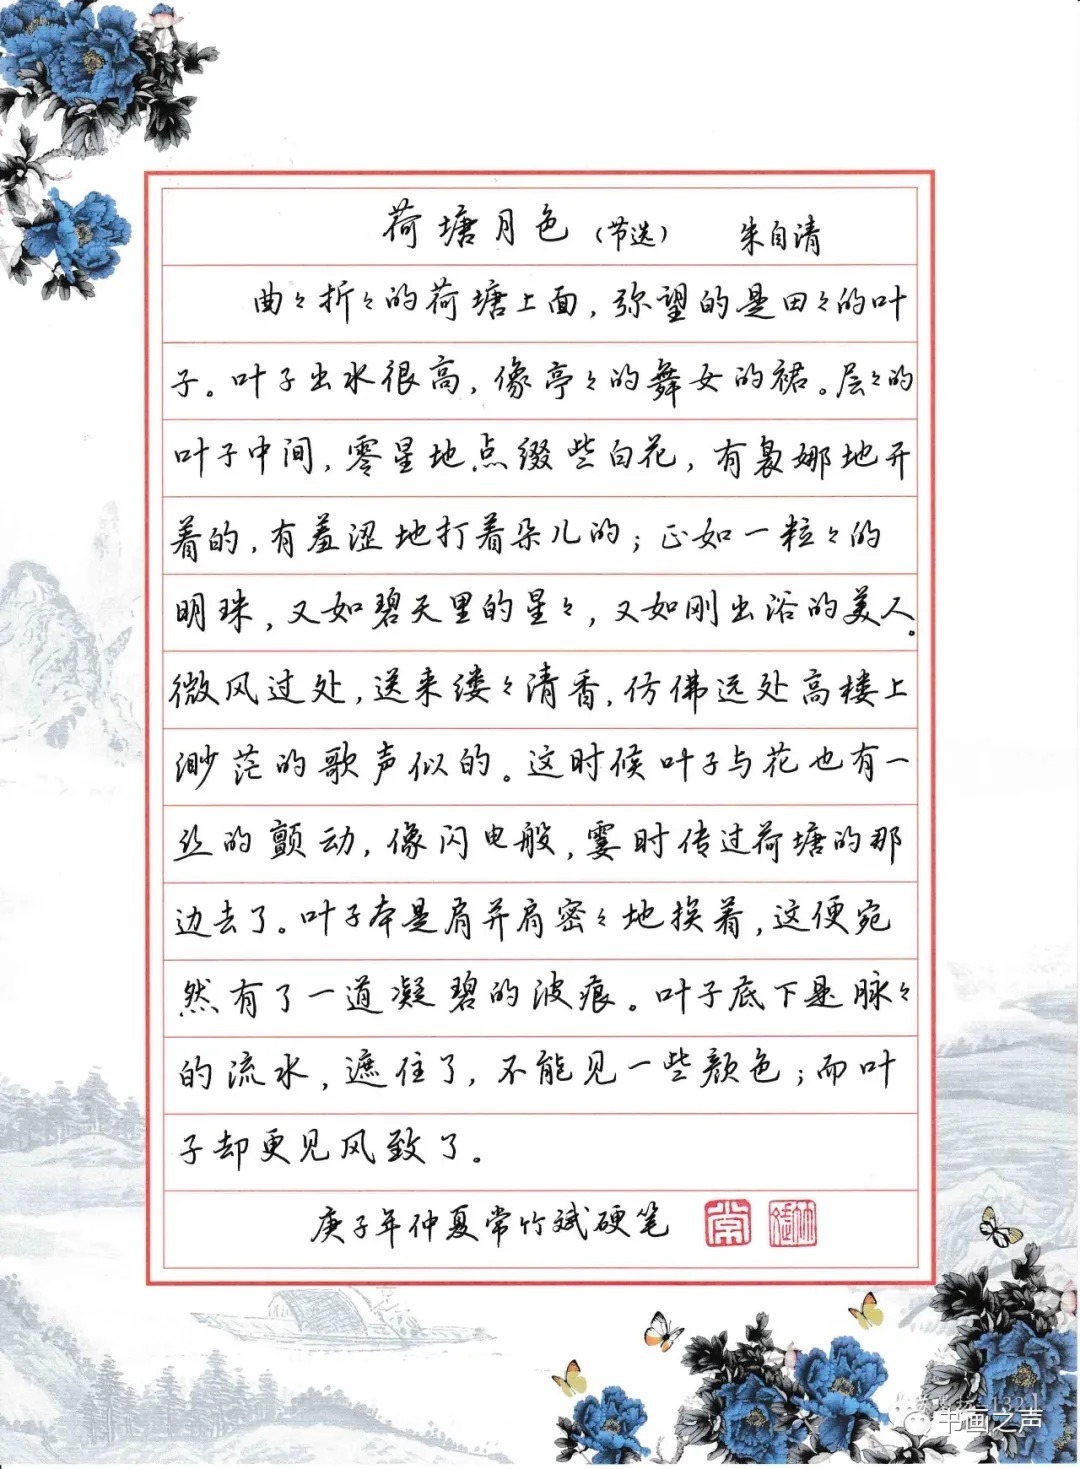 荷塘月色（节选） 朱自清
曲々折々的荷塘上面，弥望的是田々的叶
子。叶子出水很高，像亭々的舞女的裙。层々的
叶子中间，零星地点缀些白花，有袅娜地开
着的，有羞涩地打着朵儿的；正如一粒々的
明珠，又如碧天里的星々，又如刚出浴的美人。
微风过处，送来缕々清香，仿佛远处高楼上
渺茫的歌声似的。这时候叶子与花也有一
丝的颤动，像闪电般，霎时传过荷塘的那
边去了。叶子本是肩并肩密々地挨着，这便宛
然有了一道凝碧的波痕。叶子底下是脉々
的流水，遮住了，不能见一些颜色；而叶
子却更见风致了。
庚子年仲夏常竹斌硬笔
常
书画之声